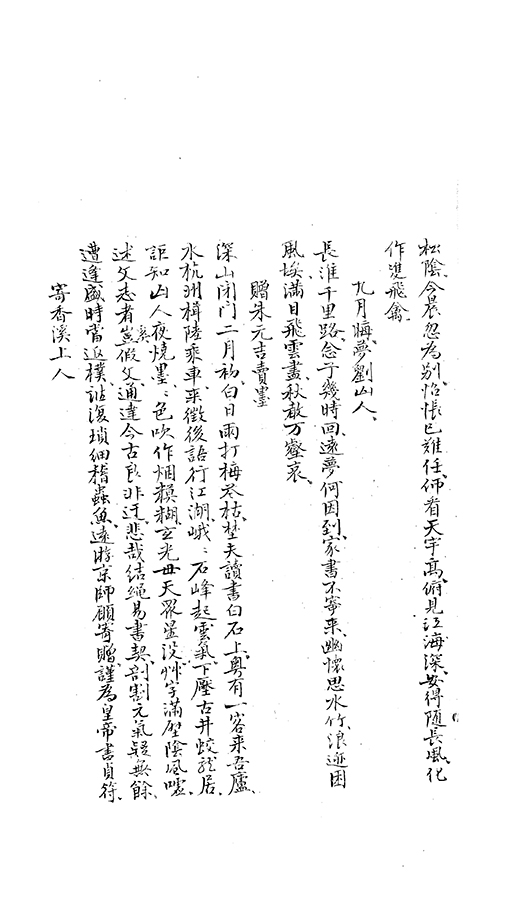 松陰今晨忽為別怊悵已難任仰看天宇高俯見江海深安得隨長風化
作雙飛禽
九月晦夢劉山人
長淮千里路念子幾時回遠夢何因到家書不寄來幽懷思水竹浪迹困
風埃滿目飛雲盡秋敲万壑哀
贈朱元吉賣墨
深山閉門二月初白日雨打梅花枯埜夫讀書白石上奧有一客来吾廬
水杭洲楫陸乘車来徵後語行江湖峨〻石峰起雲氣下壓古井蛟龍居
詎知山人夜燒墨〻色吹作烟模糊玄光毋天翳星没艸字滿壁陰風噓
述文志者奚豈假文通達今古良非迂悲哉結繩易書契剖割元氣疑無餘
遭逢盛時當返樸詎復瑣細稽蟲魚遠游京師願寄贈謹為皇帝書貞符
寄香溪上人